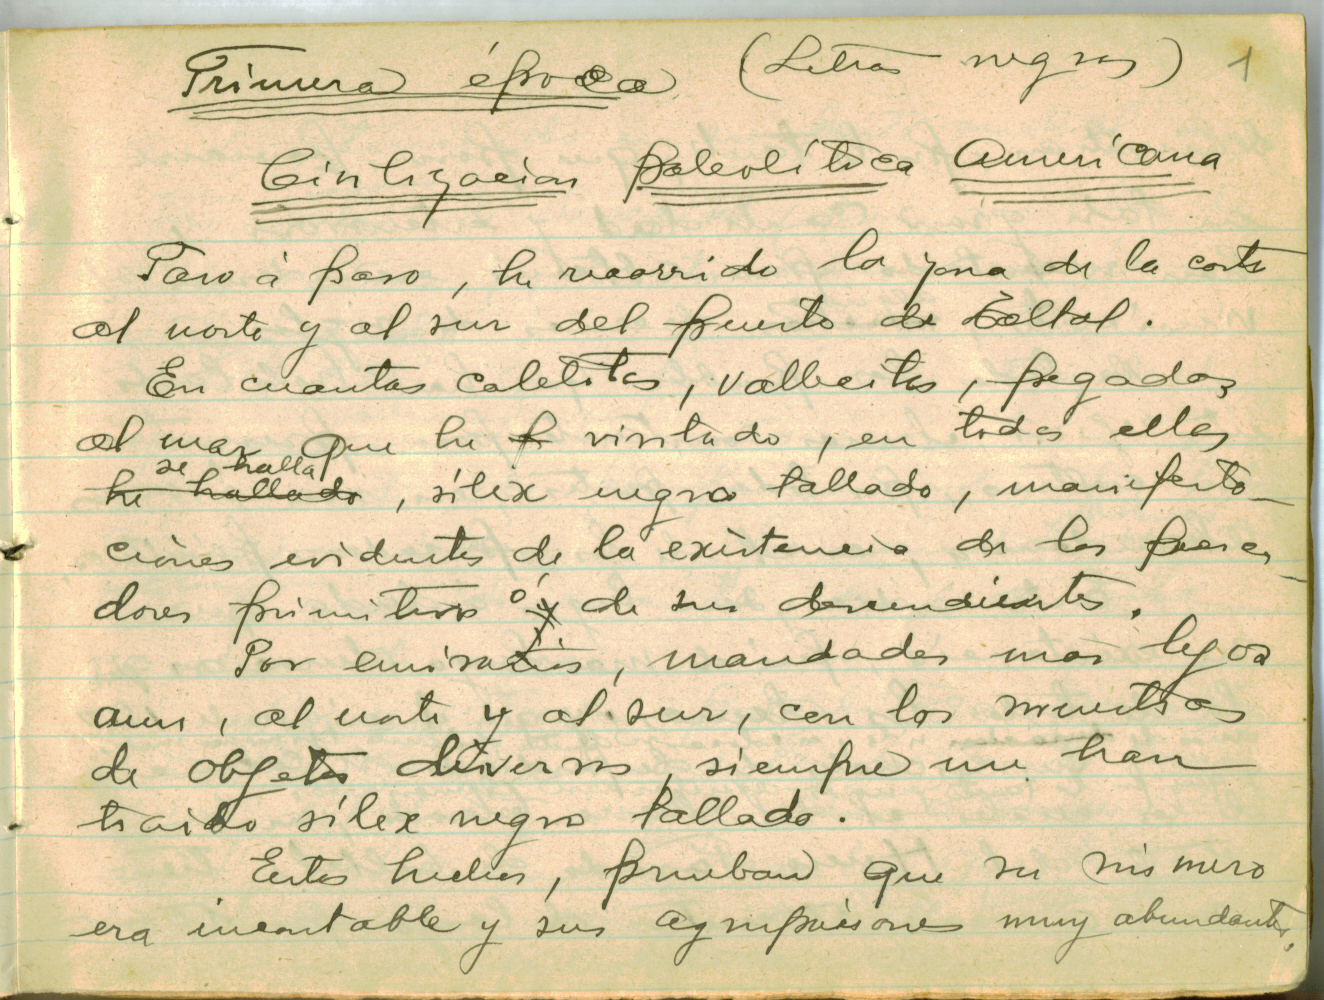 Primera época (Letras negras) 1
Civilizacion paleolítica Americana
Paso á paso, he recorrido la zona de la costa
al norte y al sur del puerto de Taltal.
En cuantas caletitas, vallecitos, pegados
al mar que he visitado, en todas ellas
se halla
he hallado, sílex negro tallado, manifesta-
ciones evidentes de la existencia de los pesca-
dores primitivos ó y de sus descendientes.
Por emisarios, mandados mas lejos
aun, al norte y al sur, con los muestras
de objetos diversos, siempre me han
traido sílex negro tallado.
Estos hechos, prueban que su número
era incontable y sus agrupaciones muy abundantes.